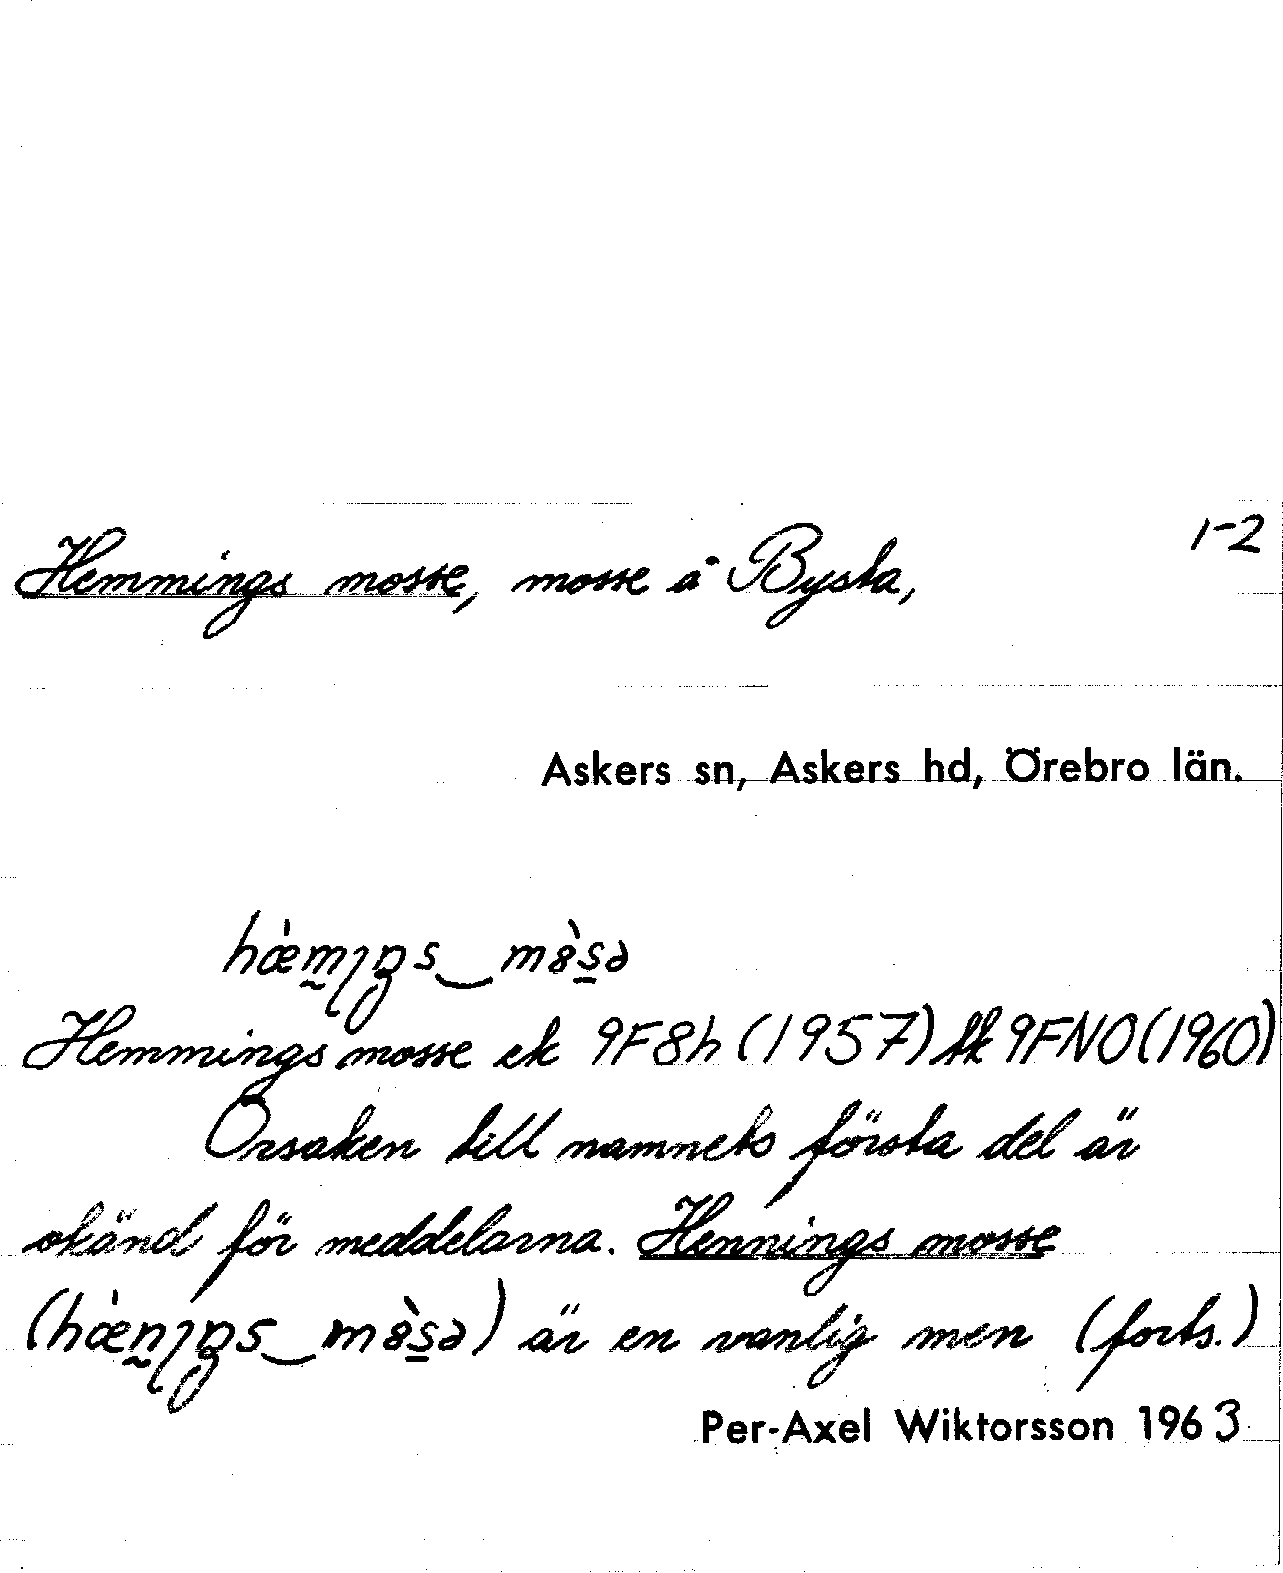 1-2
Hemmings mosse, mosse å Bysta,
Askers sn, Askers hd, Örebro län.
Hemmings mosse ek 9F8h (1957) 9FNO (1960)
Orsaken till namnets första del är
okänd för meddelarna. Hennings mosse
är en vanlig men (forts.)
Per-Axel Wiktorsson 1963